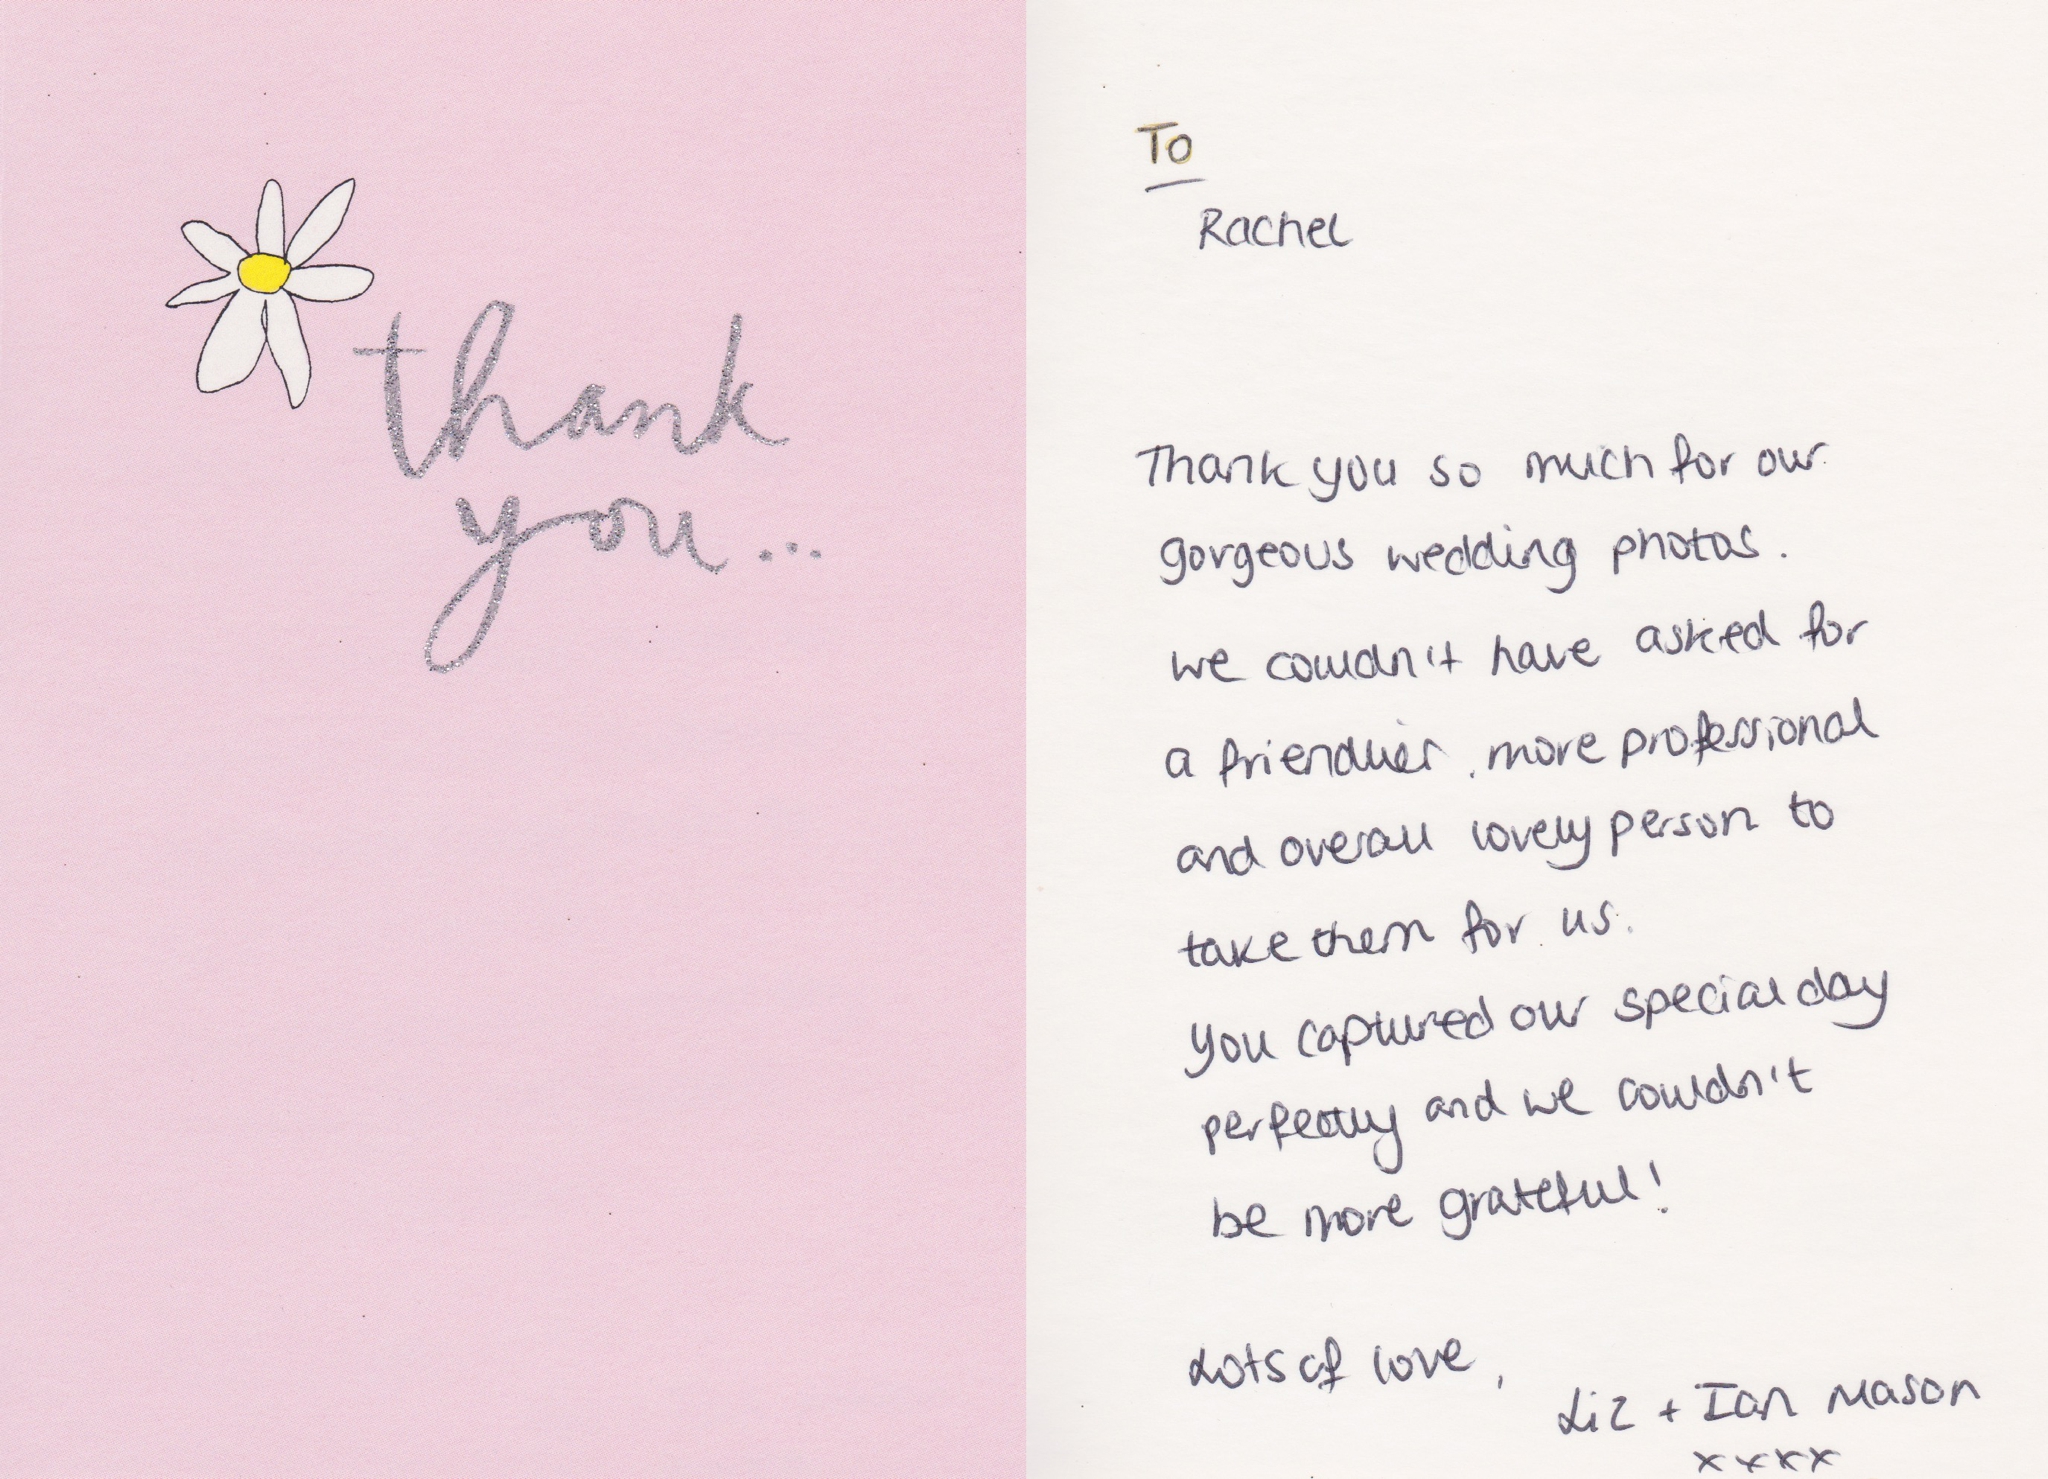 thank
you...
To
Rachel
Thank you so much for our
gorgeous wedding photos.
we couldn't have asked for
a friendlier, more professional
and overall lovely person to
take them for us.
You captured our special day
perfectly and we couldn't
be more grateful!
Lots of love,
Liz + Ian Mason
xxxx